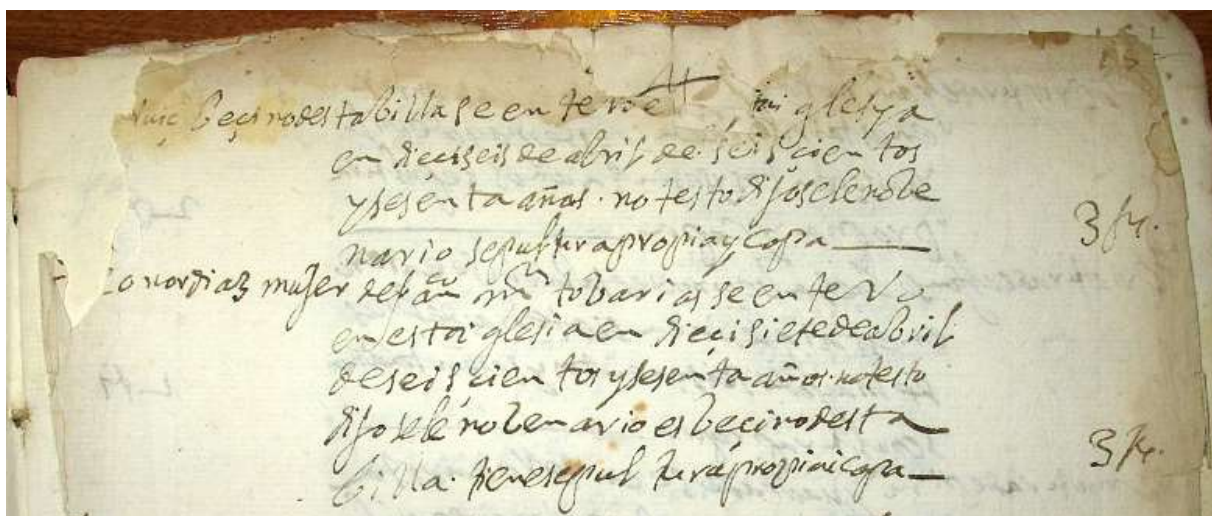 beçinodestabilla se en te Ro e tai glesya
en dieçiseis de abril de seis çien tos
y sesen ta años. no testo dijosele nobe
nario sepultura propia y Capa
onor diaz mujer de tobar ia se en te Ro
en esta iglesia en dieçisiete de abril
de seis çien tos y sesen ta años. no testo
dijosele nobenario es beçino desta
billa. tiene sepul tura propia i capa